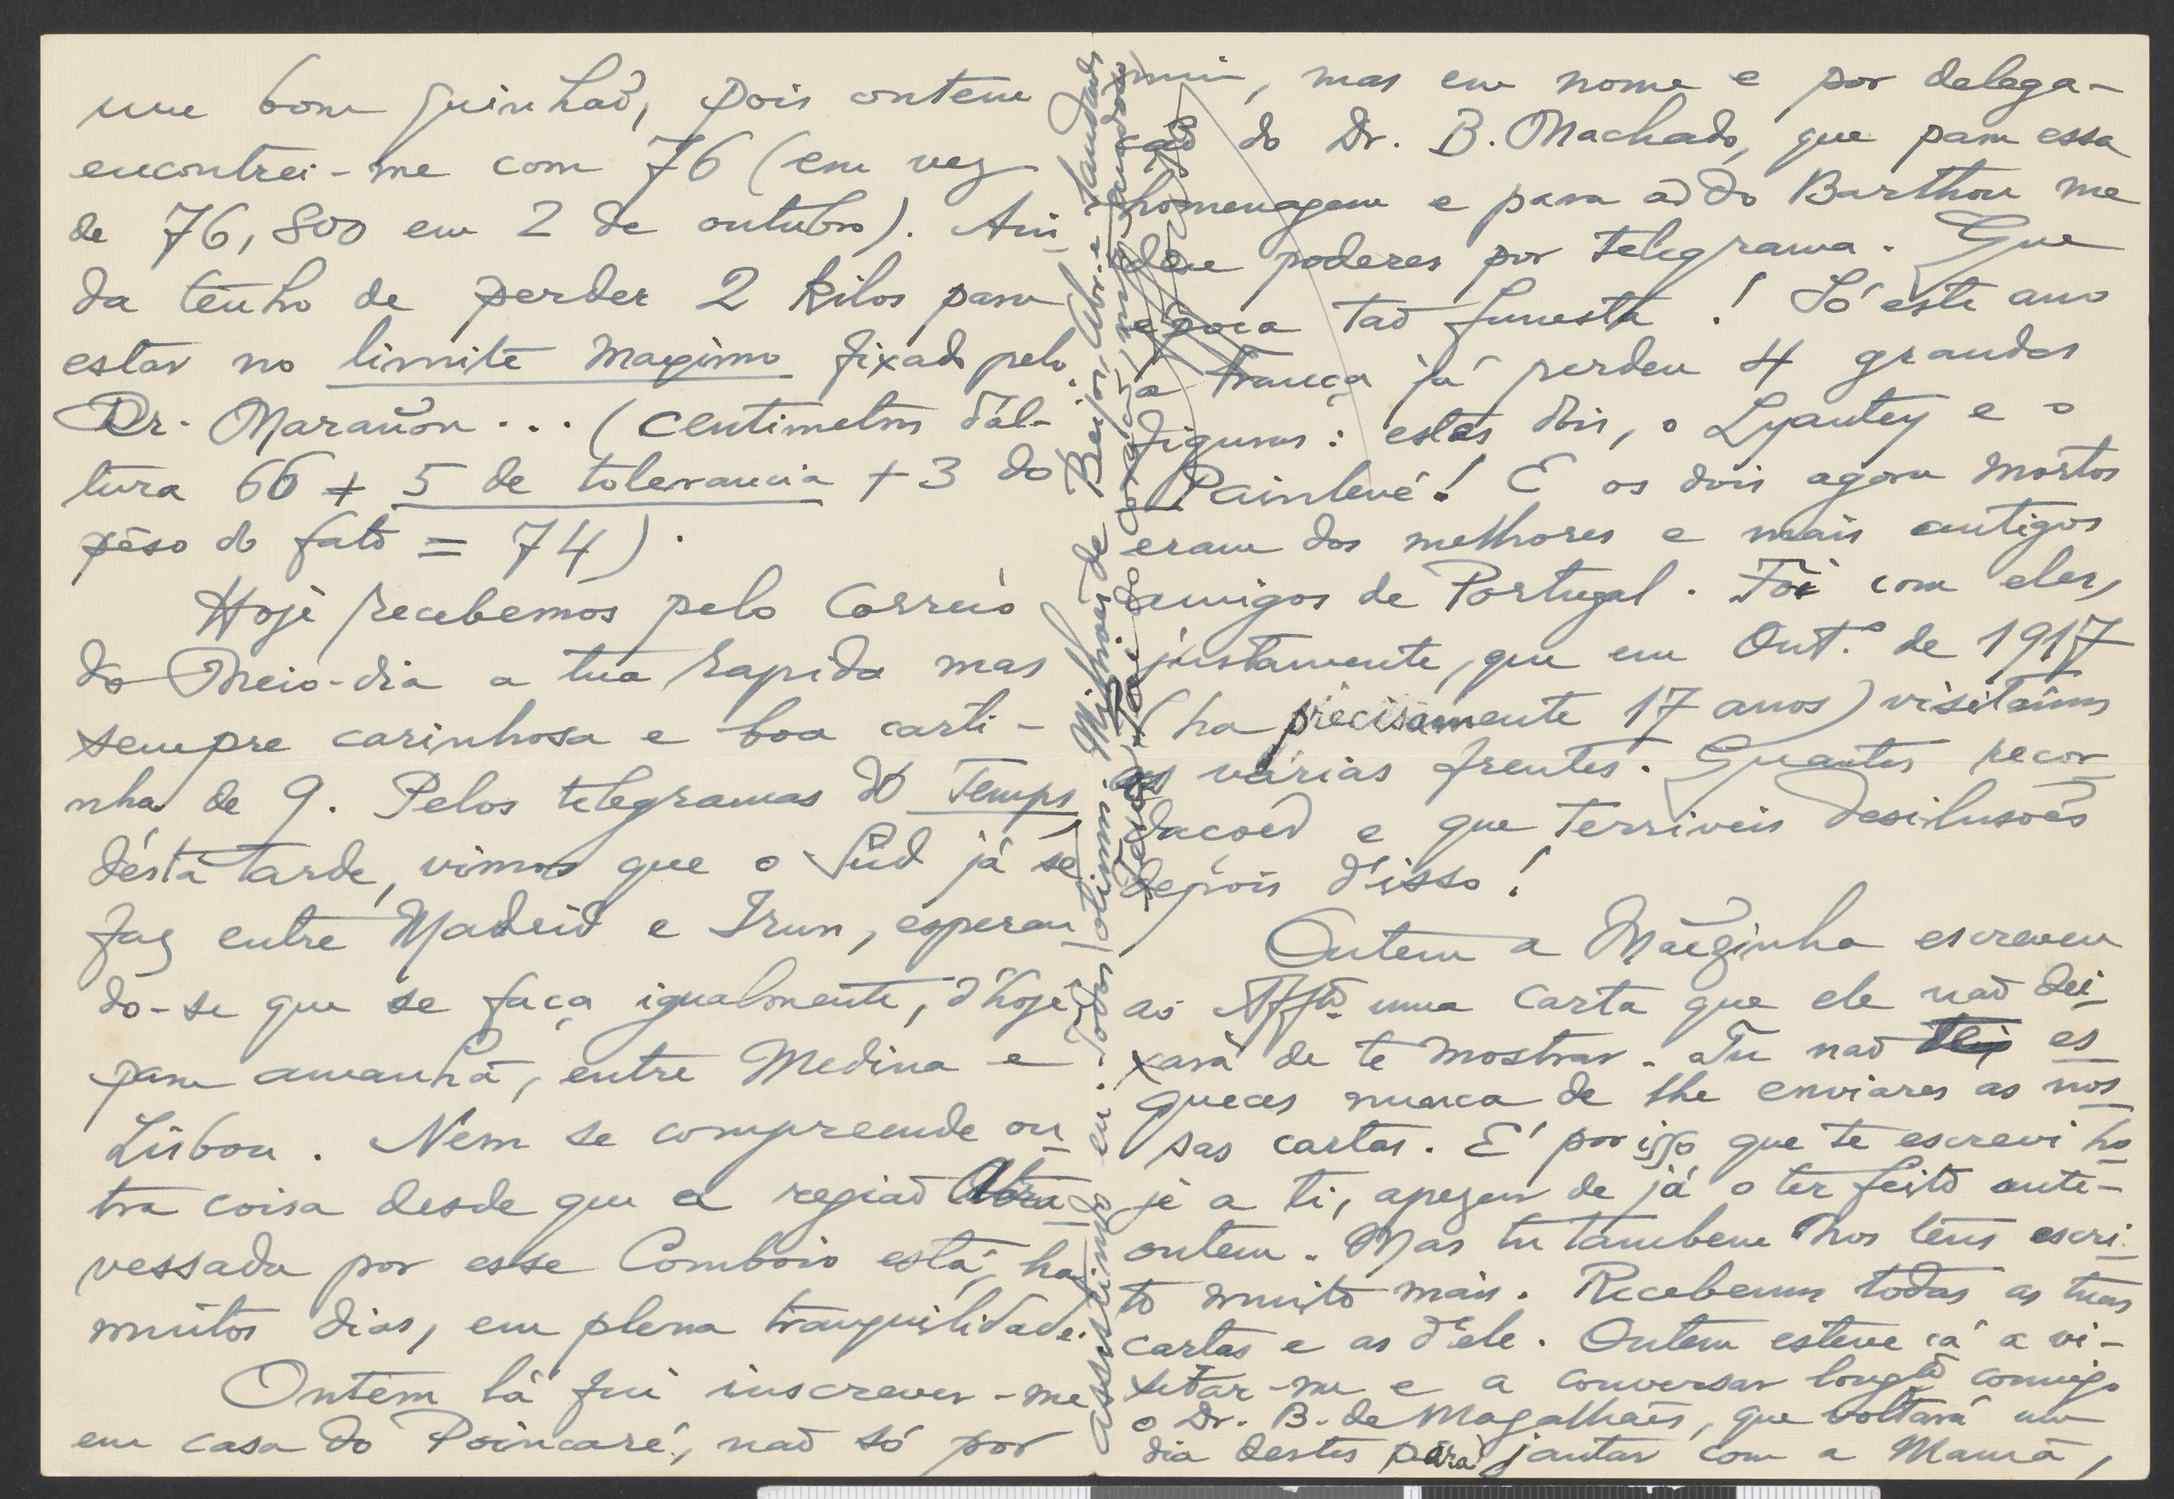 um bom quinhaõ, pois ontem
encontrei-me com 76 (em vez
de 76,800 em 2 de outubro). Ain-
da tenho de perder 2 kilos para
estar no limite maximo fixado pelo
Dr. Marañon... (centimetros d'al-
tura 66 + 5 de tolerancia + 3 do
pêso do fato = 74).
Hoje recebemos pelo Correio
do Meio-dia a tua rapida mas
sempre carinhosa e boa carti-
nha de 9. Pelos telegramas do Temps
désta tarde, vimos que o Sud já se
faz entre Madrid e Irun, esperan-
do-se que se faça igualmente, d'hoje
para amanhã, entre Medina e
Lisboa. Nem se compreende ou-
tra coisa desde que a regiaõ atra-
vessada por esse Comboio está, ha
muitos dias, em plena tranquilidade.
Ontem lá fui inscrever-me
em casa do Poincaré, naõ só por
mim, mas em nome e por delega-
çaõ do Dr. B. Machado, que para essa
homenagem e para a do Barthou me
deu poderes por telegrama. Que
época taõ funesta! Só este ano
a França já perdeu 4 grandes
figuras: estes dois, o Lyautey e o
Painlevé! E os dois agora mortos
eram dos melhores e mais antigos
amigos de Portugal. Foi com eles,
justamente, que em Out.º de 1917
(ha precisamente 17 anos) visitámos
as várias frentes. Quantas recor-
dacoes e que terriveis desilusões
depois d'isso!
Ontem a Mãezinha escreveu
ao Aff.º uma carta que ele naõ dei-
xará de te mostrar. Tu naõ es-
queces nunca de lhe enviares as nos-
sas cartas. E' por isso que te escrevi ho-
je a ti, apezar de já o ter feito ante-
ontem. Mas tu tambem nos tens escri-
to muito mais. Recebemos todas as tuas
cartas e as d'ele. Ontem esteve cá a vi-
sitar-me e a conversar long.te comigo
o Dr. B. de Magalhães, que voltará um
dia destes para jantar com a Mamã,
assistindo eu. Todos otimos. Milhões de Beijos, Abr. e Saudades
do Coração, mt.º saudoso